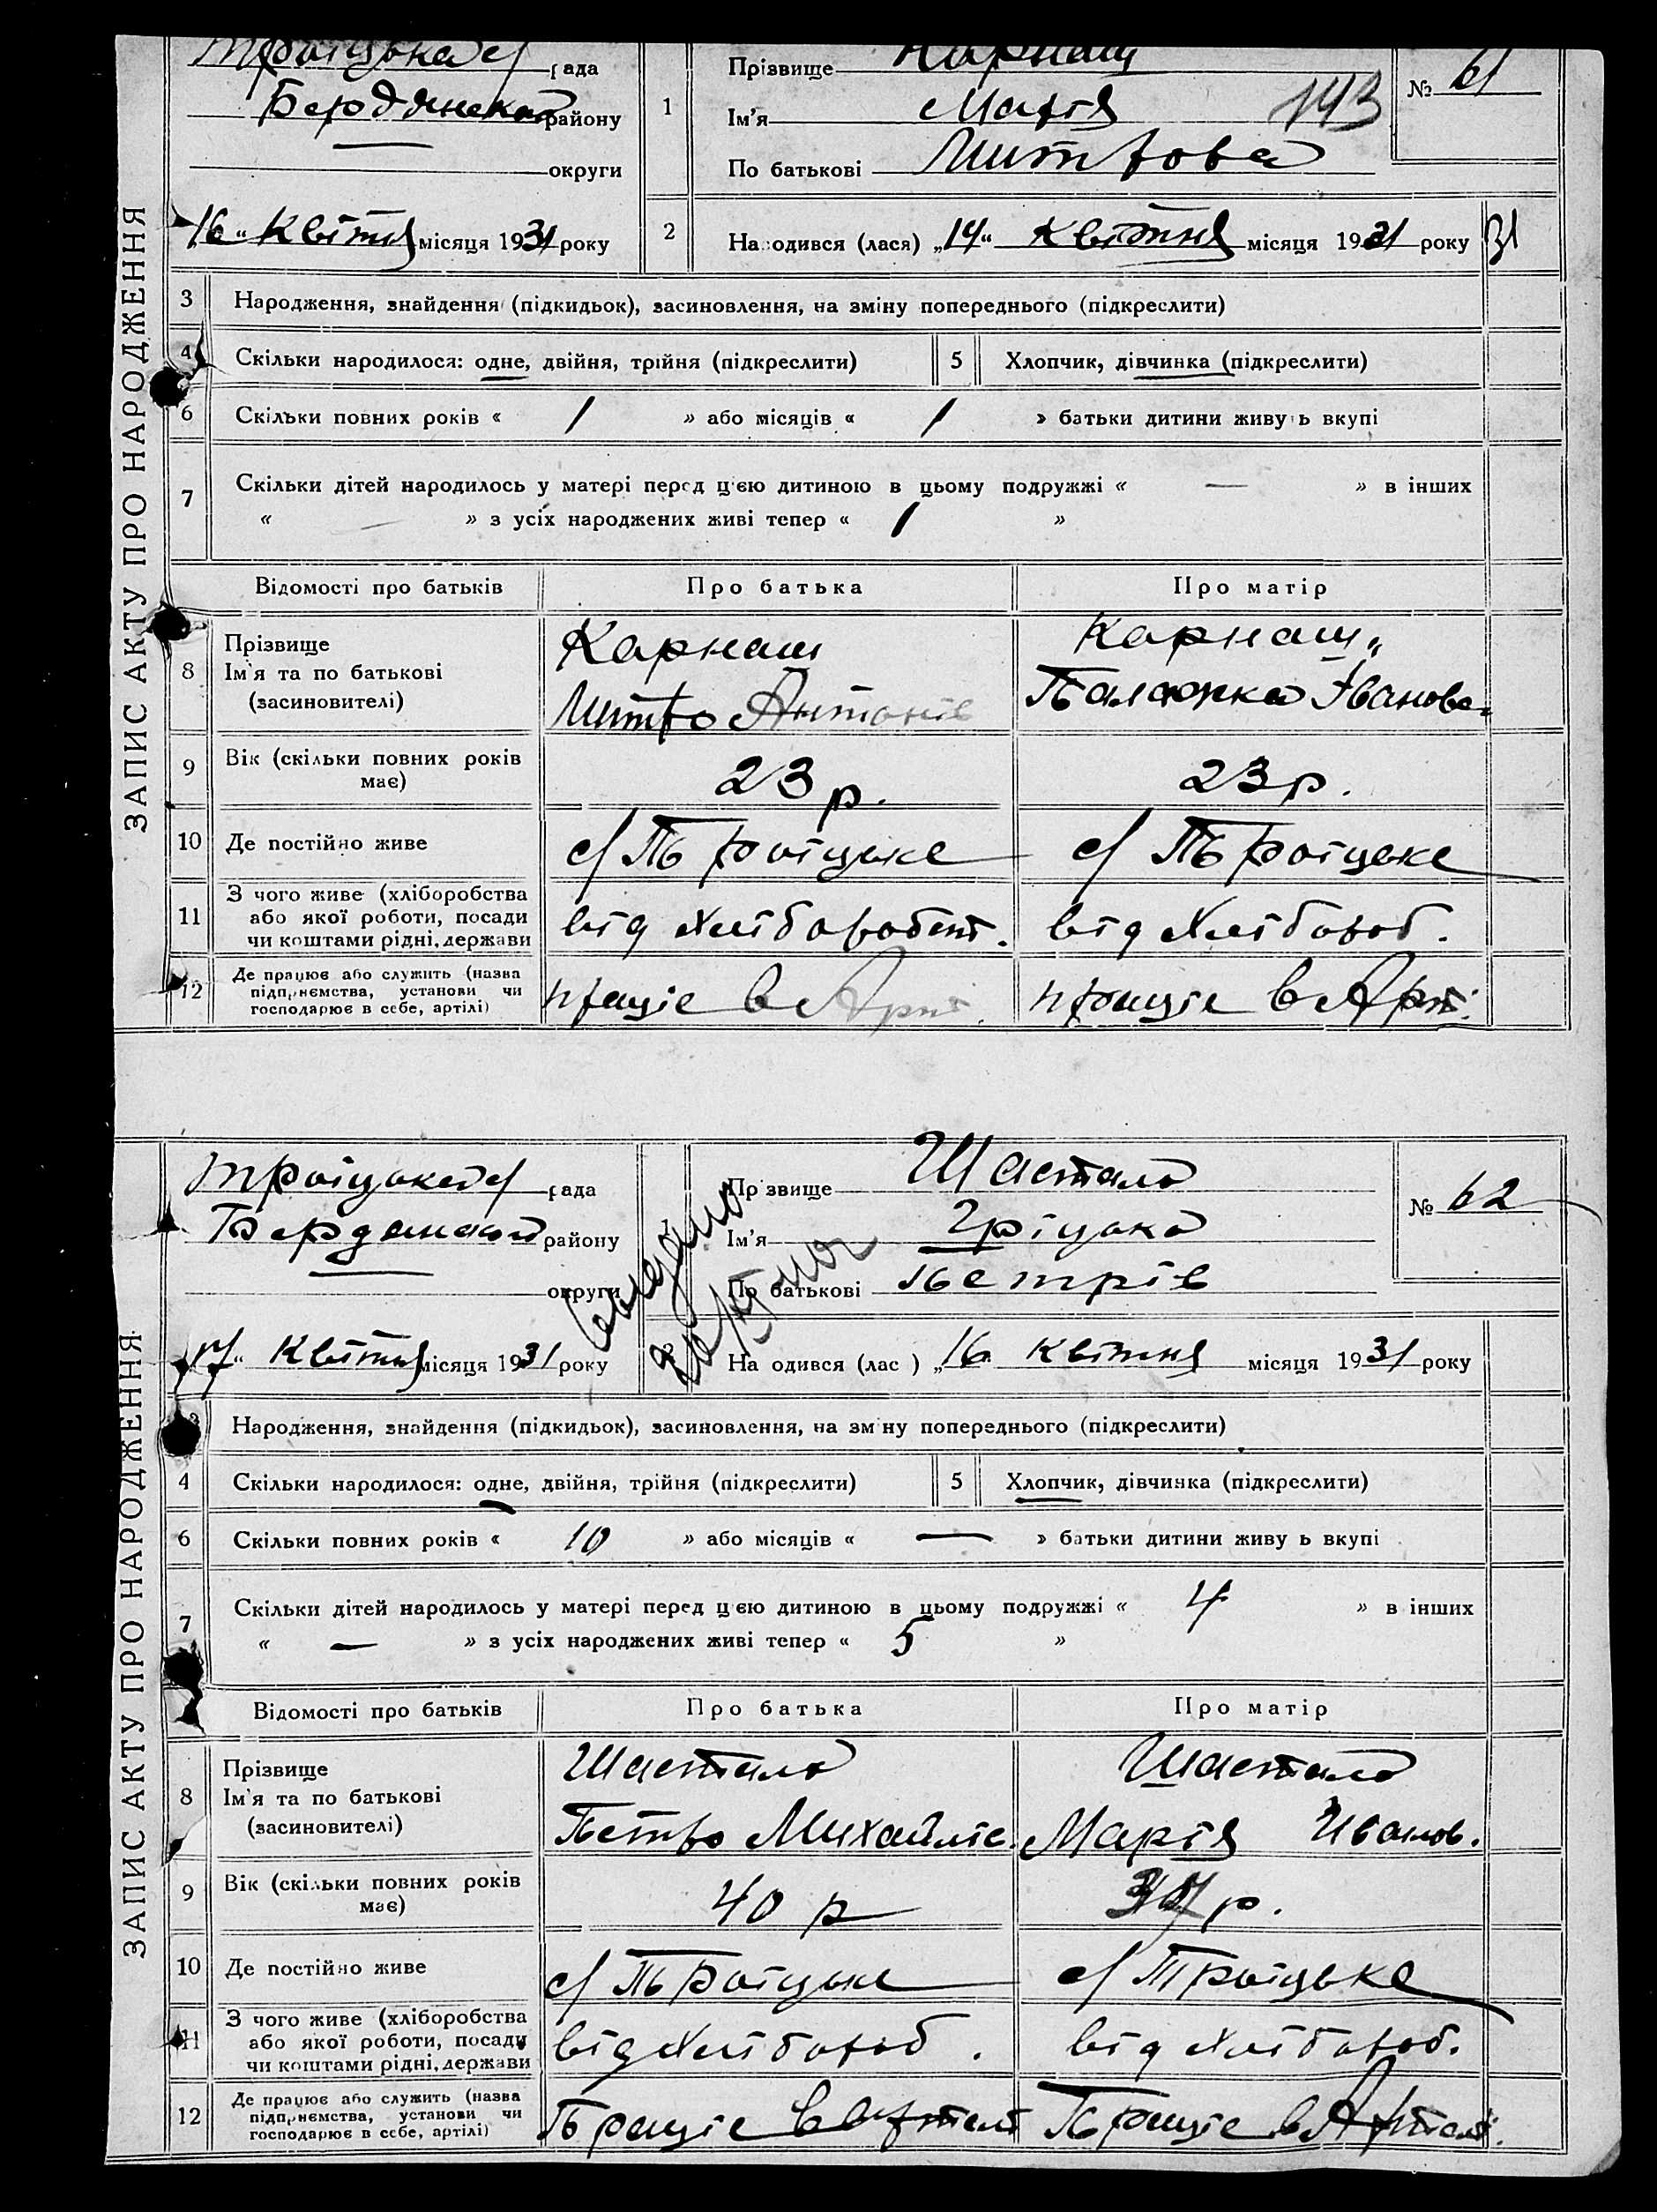 ЗАПИС АКТУ ПРО НАРОДЖЕННЯ
Троїцька с/ рада
Бердянський району
округи
16 " Квітня місяця 1931 року
1
Прізвище Карнаш
Ім'я Марія
143
По батькові Митрова
№ 61
2
Народився (лася) „14" Квітня місяця 1931 року
31
3 Народження, знайдення (підкидьок), засиновлення, на зміну попереднього (підкреслити)
4 Скільки народилося: одне, двійня, трійня (підкреслити) 5 Хлопчик, дівчинка (підкреслити)
6 Скільки повних років « / » або місяців « / » батьки дитини живуть вкупі
7 Скільки дітей народилось у матері перед цією дитиною в цьому подружжі « — » в інших
« — » з усіх народжених живі тепер « 1 »
Відомості про батьків Про батька Про матір
8 Прізвище
Ім'я та по батькові
(засиновителі)
Карнаш
Митро Антонів
Карнаш
Палажка Іванова
9 Вік (скільки повних років має) 23 р. 23 р.
10 Де постійно живе с/ Троїцьке с/ Троїцьке
11 З чого живе (хліборобства
або якої роботи, посади
чи коштами рідні, держави
від Хліборобст. від Хлібороб.
12 Де працює або служить (назва
підприємства, установи чи
господарює в себе, артілі)
працює в Арт. працює в Арт.
ЗАПИС АКТУ ПРО НАРОДЖЕННЯ
Троїцька с/ рада
Бердянський району
округи
17 " Квітня місяця 1931 року
Прізвище Шастало
Ім'я Гріцько
По батькові Петрів
№ 62
Народився (лас ) „16 Квітня місяця 1931 року
3 Народження, знайдення (підкидьок), засиновлення, на зміну попереднього (підкреслити)
4 Скільки народилося: одне, двійня, трійня (підкреслити) 5 Хлопчик, дівчинка (підкреслити)
6 Скільки повних років « 10 » або місяців « — » батьки дитини живуть вкупі
7 Скільки дітей народилось у матері перед цією дитиною в цьому подружжі « 4 » в інших
« — » з усіх народжених живі тепер « 5 »
Відомості про батьків Про батька Про матір
8 Прізвище
Ім'я та по батькові
(засиновителі)
Шастало
Петро Михайлів.
Шастало
Марія Иванов.
9 Вік (скільки повних років має) 40 р р.
10 Де постійно живе с/ Троїцьке с/ Троїцьке
11 З чого живе (хліборобства
або якої роботи, посади
чи коштами рідні, держави
від Хлібороб. від Хлібороб.
12 Де працює або служить (назва
підприємства, установи чи
господарює в себе, артілі)
Працює в артелі Працює в Артелі.